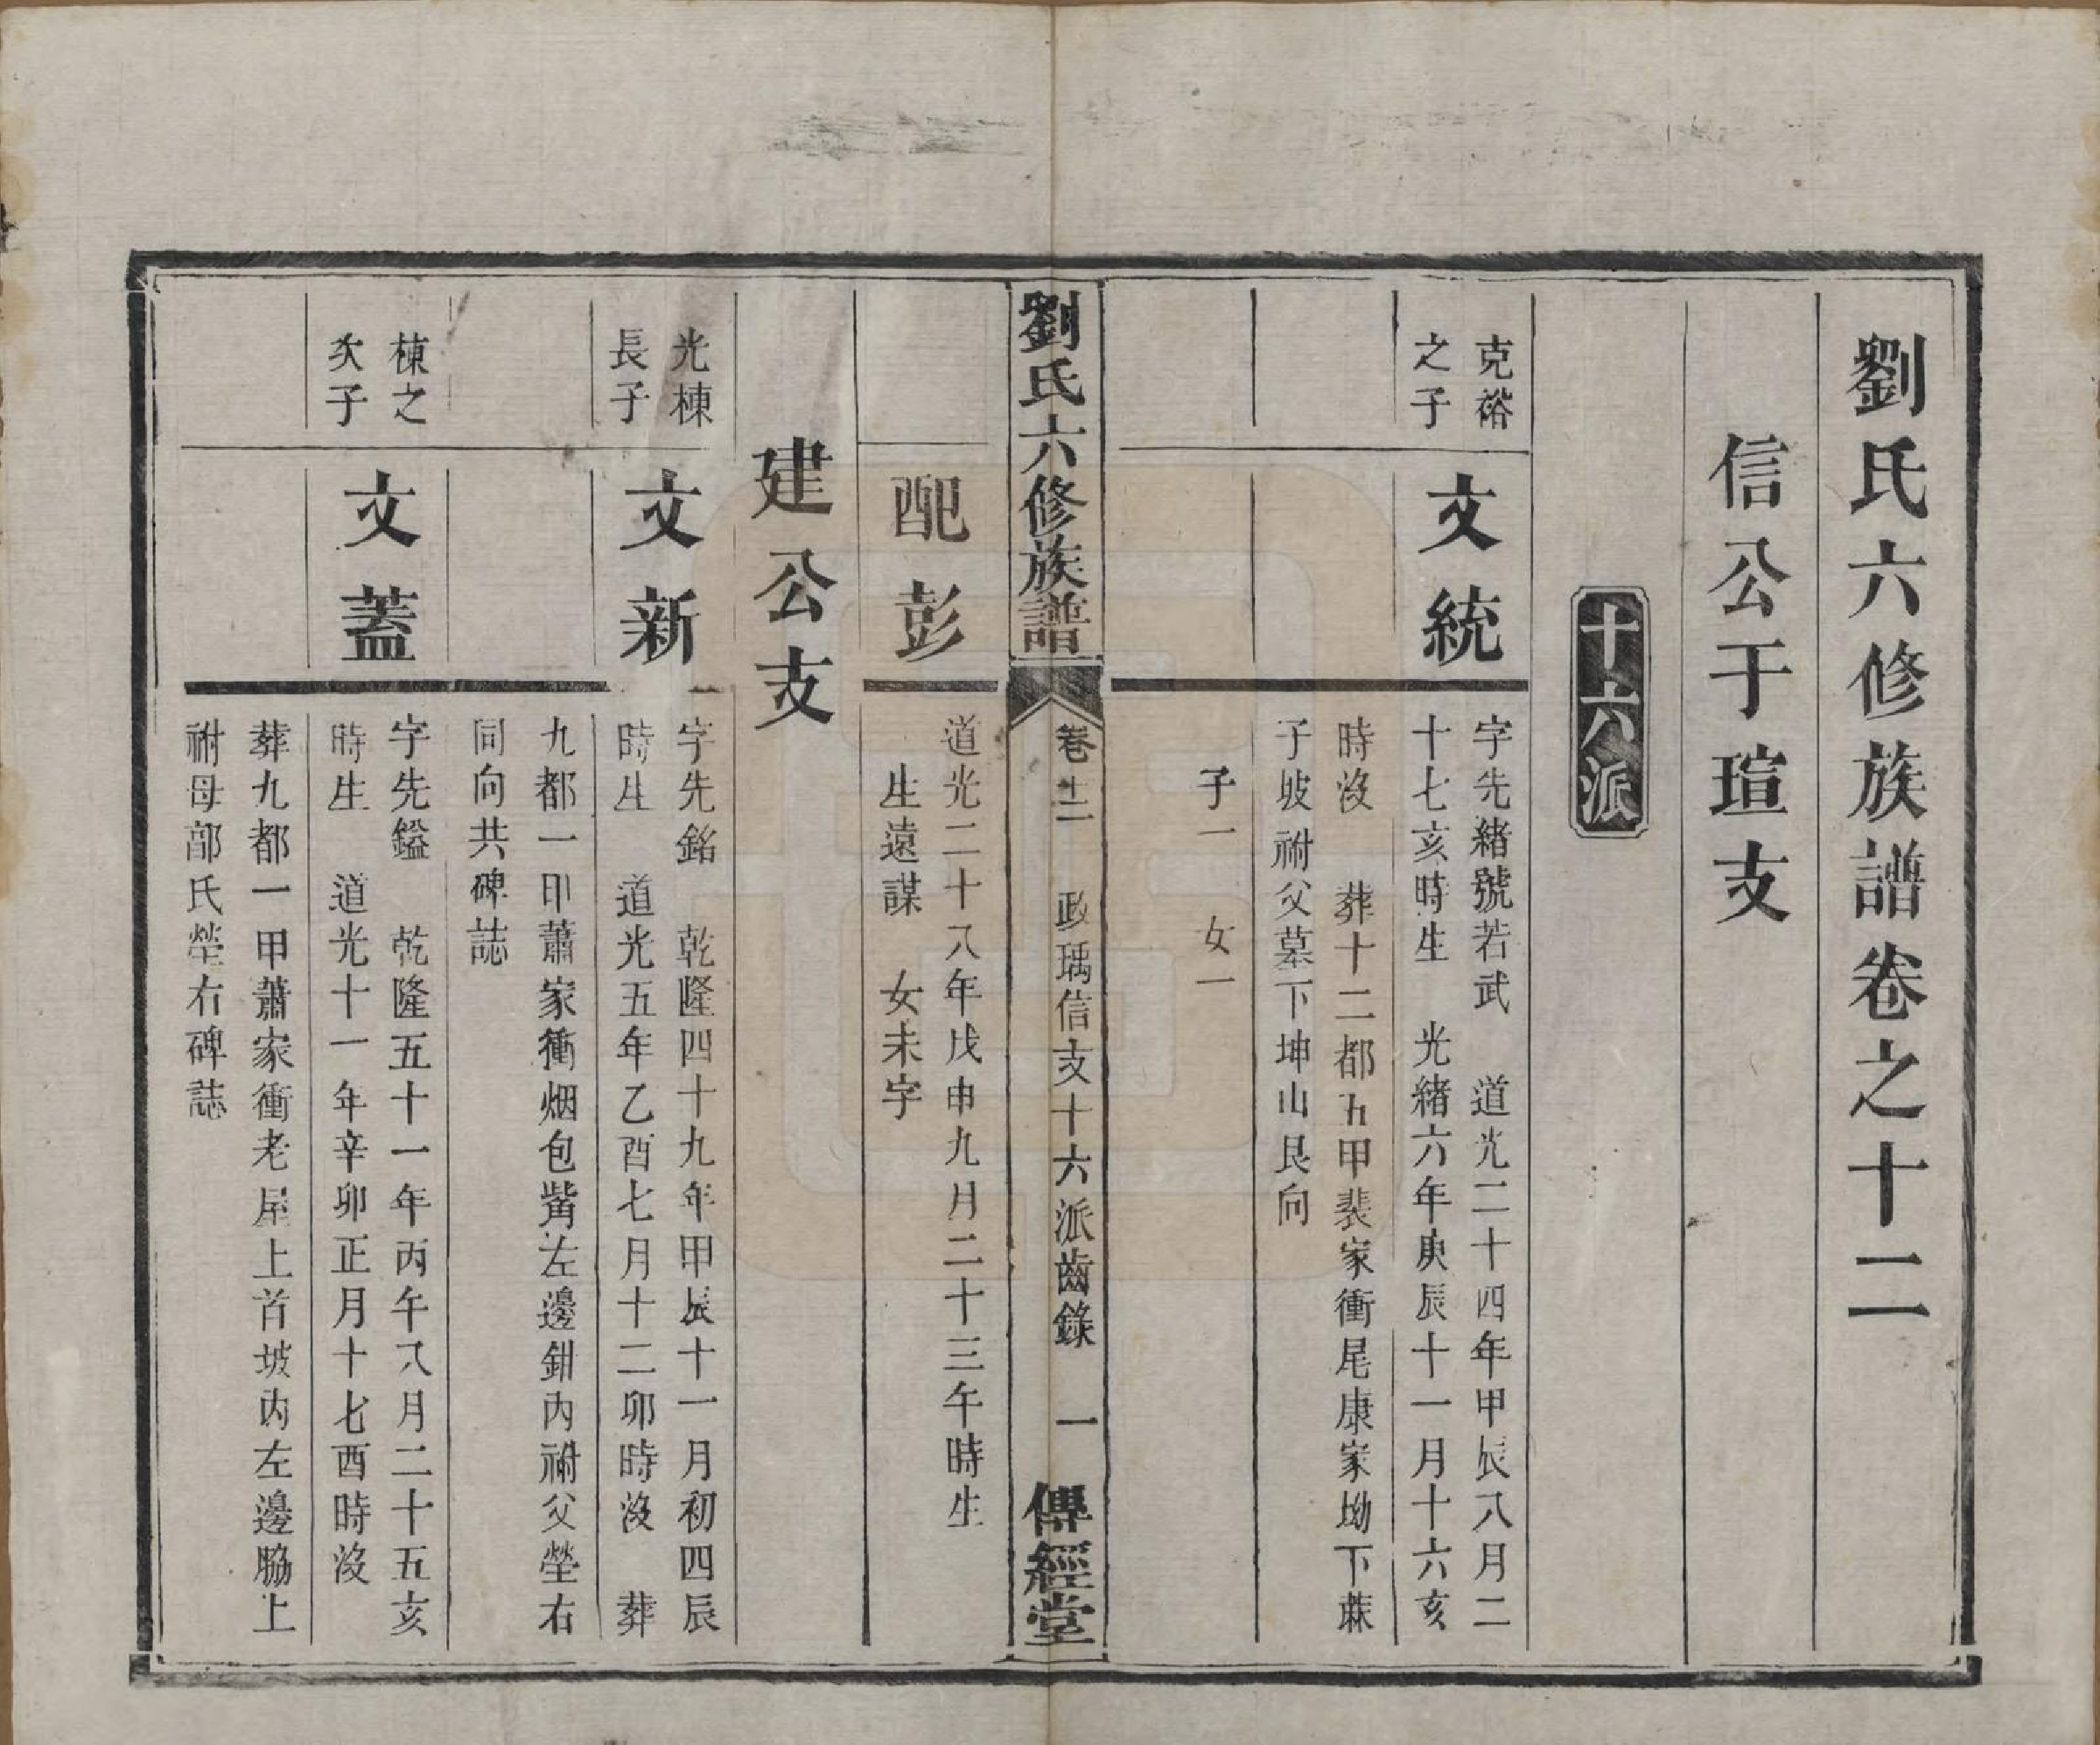 劉氏六修族譜卷之十二
信公于瑄支
十六派
克裕
之子
文統
字先緒號若武　道光二十四年甲辰八月二
十七亥時生　光緒六年庚辰十一月十六亥
時沒　葬十二都五甲裴家衝尾康家坳下蔴
子坡祔父墓下坤山艮向
子一　女一
劉氏六修族譜
卷十二　政瑀信支十六派齒錄　一
傳經堂
配彭
道光二十八年戊申九月二十三午時生
生遠謀　女未字
建公支
光棟
長子
文新
字先銘　乾隆四十九年甲辰十一月初四辰
時生　道光五年乙酉七月十二卯時沒　葬
九都一甲蕭家衝烟包嘴左邊鉗內祔父塋右
同向共碑誌
棟之
次子
文蓋
字先鎰　乾隆五十一年丙午八月二十五亥
時生　道光十一年辛卯正月十七酉時沒
葬九都一甲蕭家衝老屋上首坡內左邊脇上
祔母部氏塋右碑誌